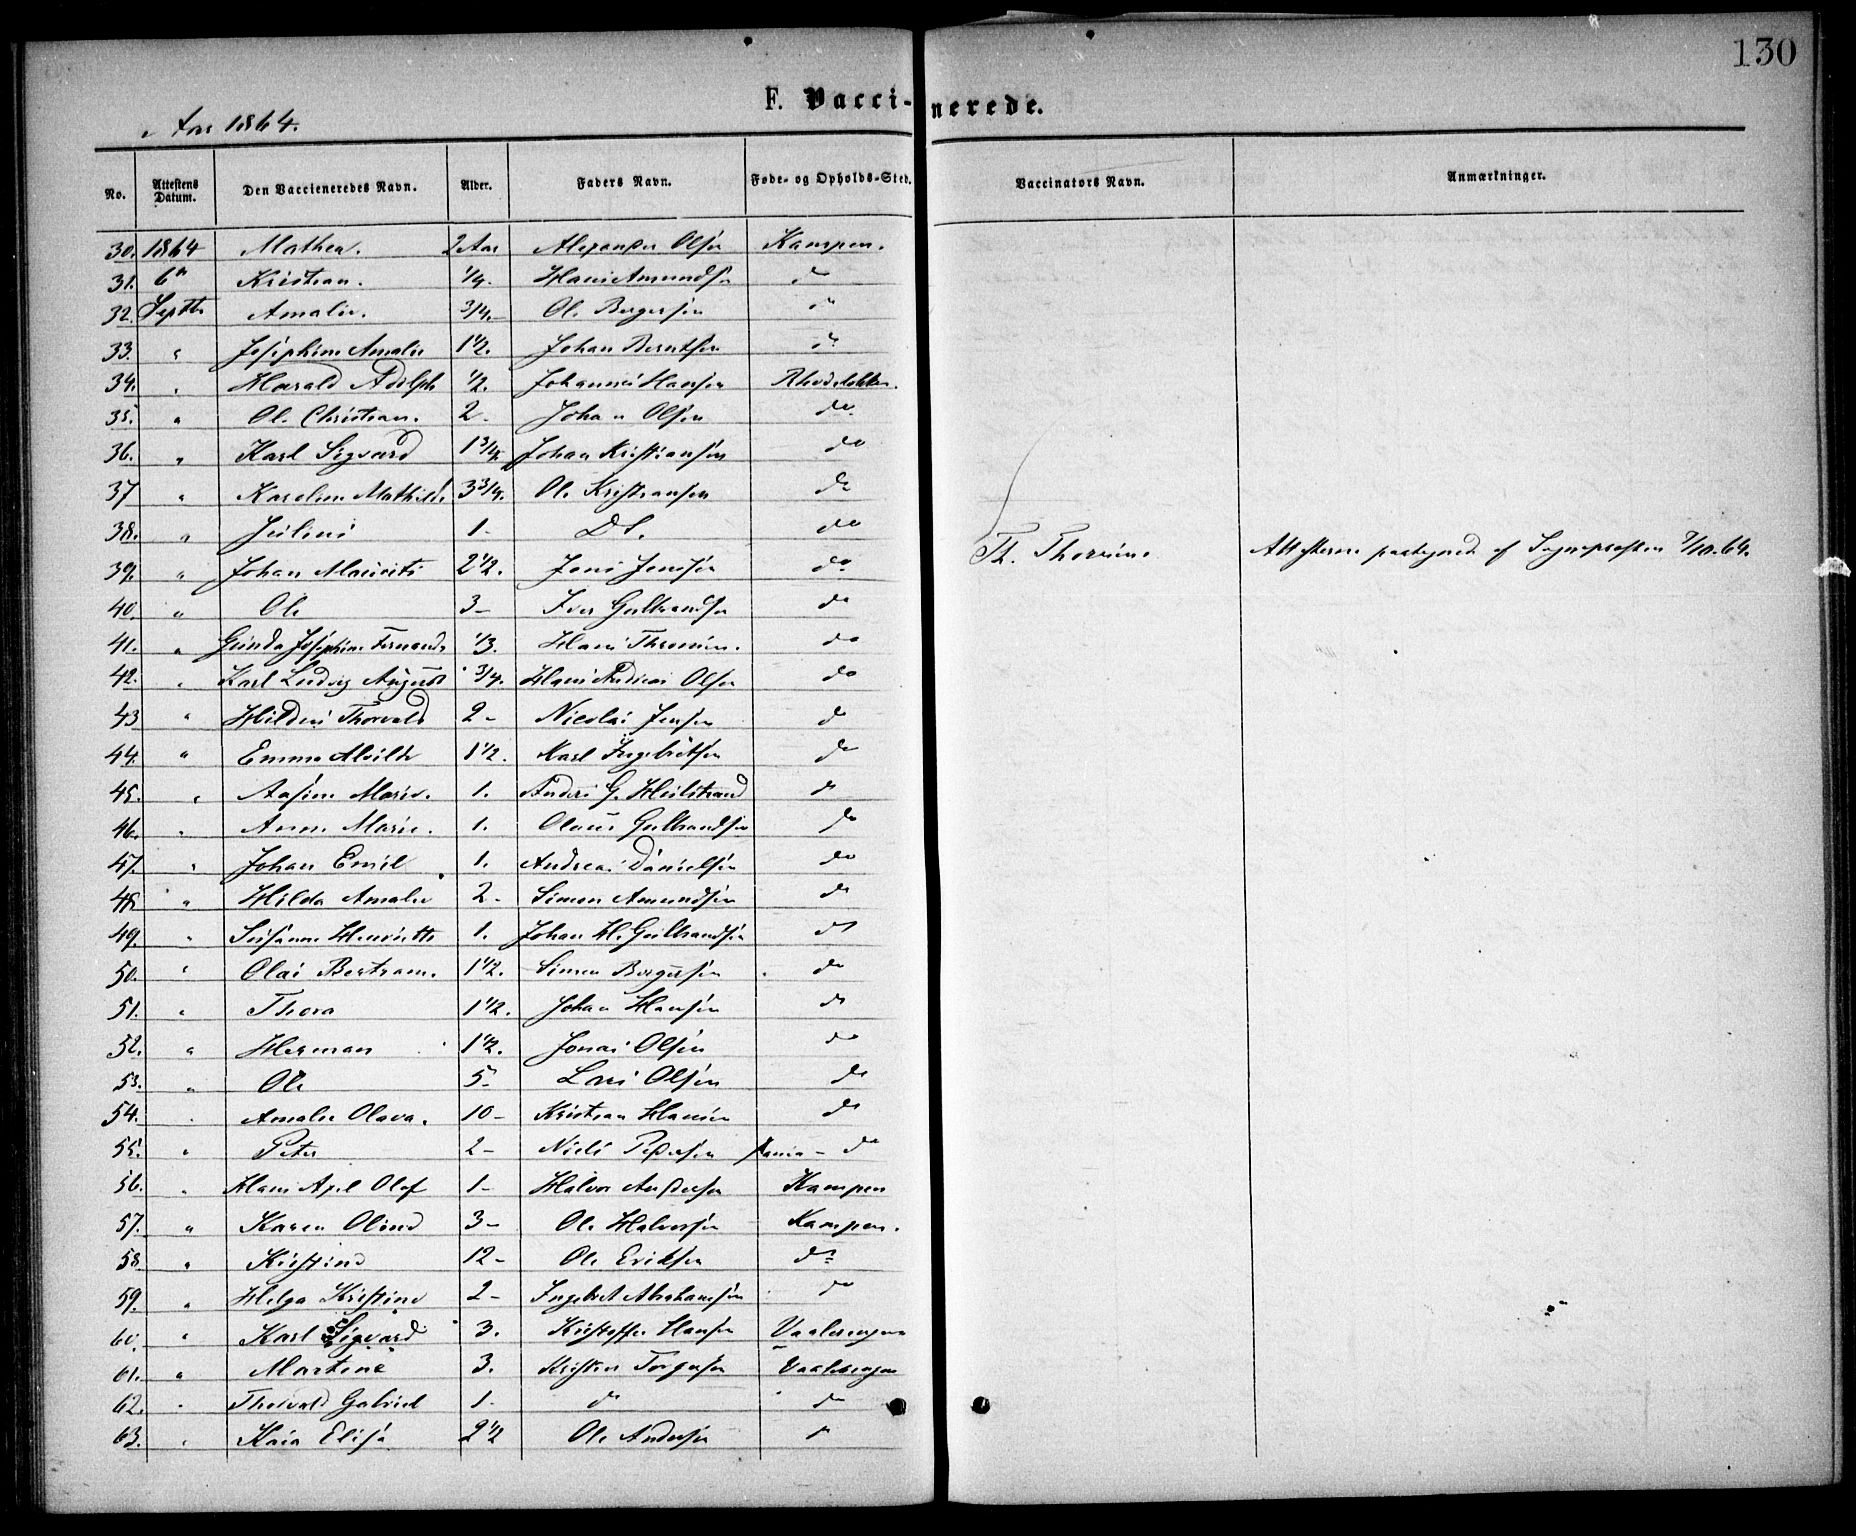 130
F. Vacci- nerede.
i Aar 1864.
No. Attestens Datum. Den Vaccieneredes Navn. Alder. Faders Navn. Føde- og Opholds-Sted. Vaccinators Navn. Anmærkninger.
30. 1864 Mathea. 2 Aar Alexander Olsen Kampen.
31. 6te Kristian. 1/4. Hans Amundsen do
32. Septbr Amalie. 3/4 - Ole Bergersen do
33. " Josephine Amalie 1 1/2. Johan Berntsen do
34. " Harald Adolph 1/2. Johannes Hansen Rhodeløkken.
35. " Ole Christian. 2 - Johan Olsen do
36. " Karl Sigvard 1 3/4. Johan Kristiansen do
37 " Karoline Mathilde 3 3/4. Ole Kristiansen do
38. " Julius 1 - Do. do
39. " Johan Mauritz 2 1/2. Jens Jensen do Th. Attesterne paategnet af Sogneprosten 7/10.64.
40. " Ole 3 - Iver Gulbrandsen do
41. " Josephine 1/3. Hans do
42. " Karl Ludvig August 3/4. Hans Andreas Olsen do
43 " Thorvald 2 - Nicolai Jensen do
44. " Emma Alvilde 1 1/2. Karl Ingebretsen do
45. " Aasine Marie. 1. Anders G. do
46. " Anne Marie. 1. Olaus Gulbrandsen do
47. " Johan Emil 1. Andreas Danielsen do
48 " Hilda Amalie 2 - Simon Amundsen do
49. " Susanne Henriette 1. Johan H. Gulbrandsen do
50. " Olai Bertram. 1 1/2. Simen Bergersen do
51. " Thora 1 1/2. Johan Hansen do
52. " Herman 1 1/2. Jonas Olsen do
53. " Ole 5 - Lars Olsen do
54. " Amalie Olava. 10 - Kristian Hansen do
55. " Peter 2 - Niels Pedersen do
56. " Hans Axel Olaf 1 - Halvor Andersen Kampen
57. " Karen Oline 3 - Ole Halvorsen Kampen.
58 " Kirstine 12 - Ole Eriksen do
59. " Helga Kristine 2 - Ingebret Abrahamsen do
60. " Karl Sigvard 3. Kristoffer Hansen Vaalerengen
61. " Martine 3. Kristen Torgersen Vaalerengen
62. " Thorvald Gabriel 1. do do
63. " Kaia Elisa 2 1/2 Ole Andersen "